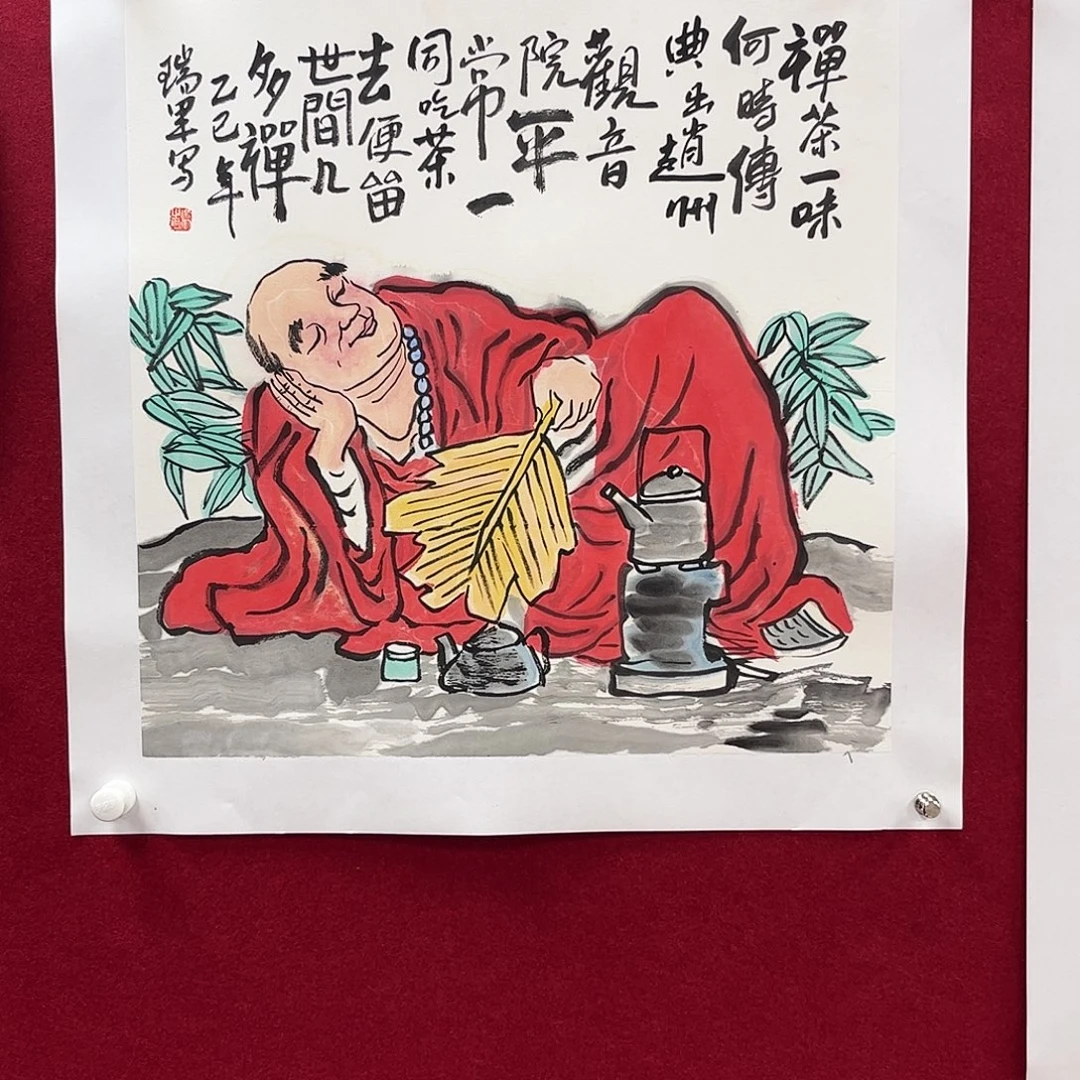 禪茶一味
何時傳
典出趙州
觀音
院平
常一
同吃茶
去便畄
世間几
多禪
乙巳年
瑞写